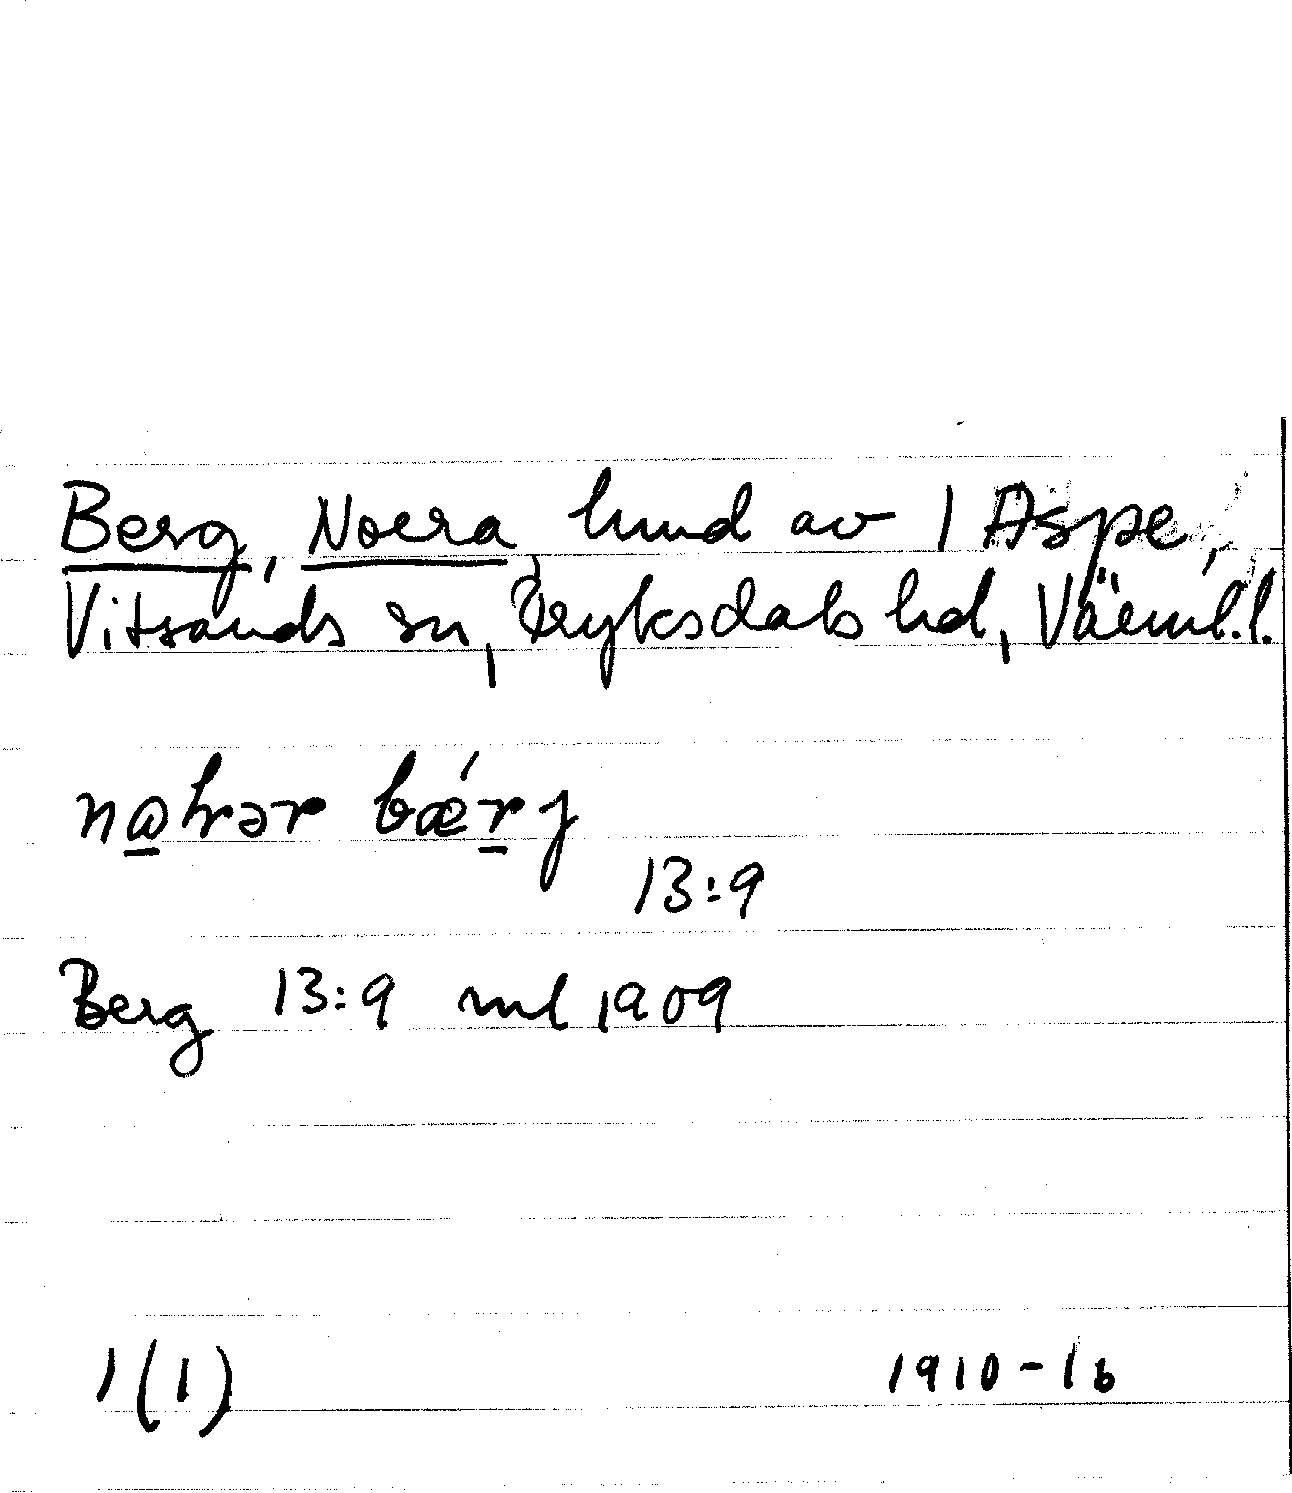 Berg, Norra, hmd av 1 Aspe,
Vitsands sn, Fryksdals hd, Värml. l.
bǽrj
13:9
Berg 13:9 ml 1909
1(1) 1910-16